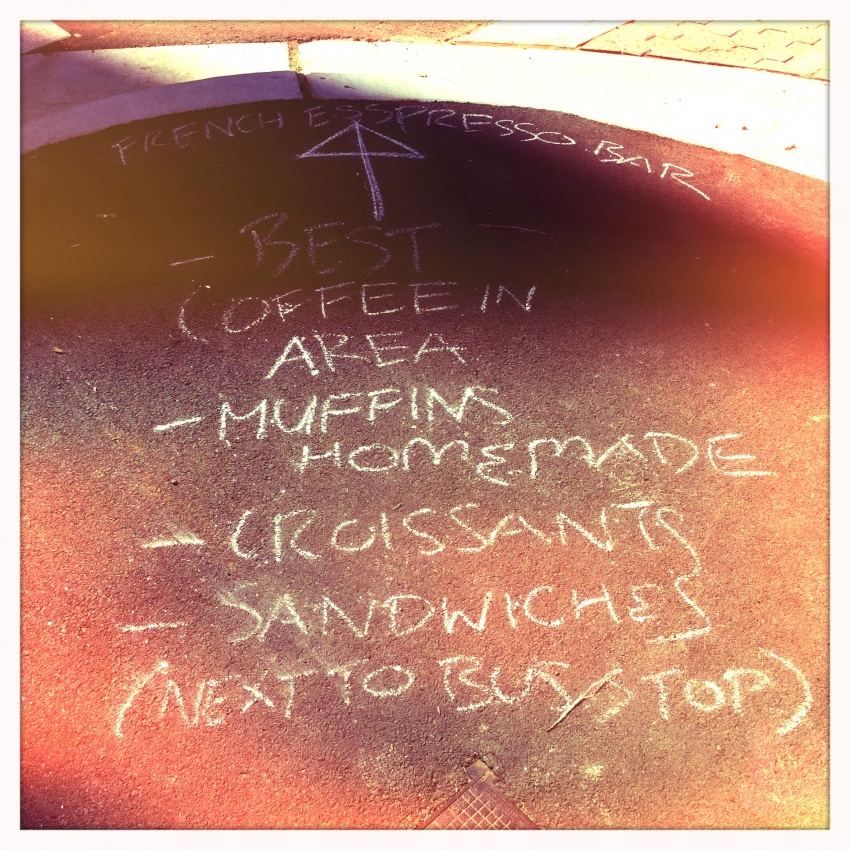 FRENCH ESSPRESSO BAR
- BEST
COFFEE IN
AREA
- MUFFINS
HOMEMADE
- CROISSANTS
- SANDWICHES
(NEXT TO BUS/STOP)